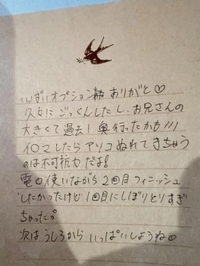 いっぱいオプション紬 ありがと♡
久々にごっくんしたし、お兄さんの
大きくて過去1奥行ったかも///
イロマしたら アソコ ぬれてきちゃう
のは不可抗力だよ!
電マ使いながら2回目フィニッシュ
したかったけど1回目にしぼりとりすぎ
ちゃった。
次はうしろから いっぱいしようね♡